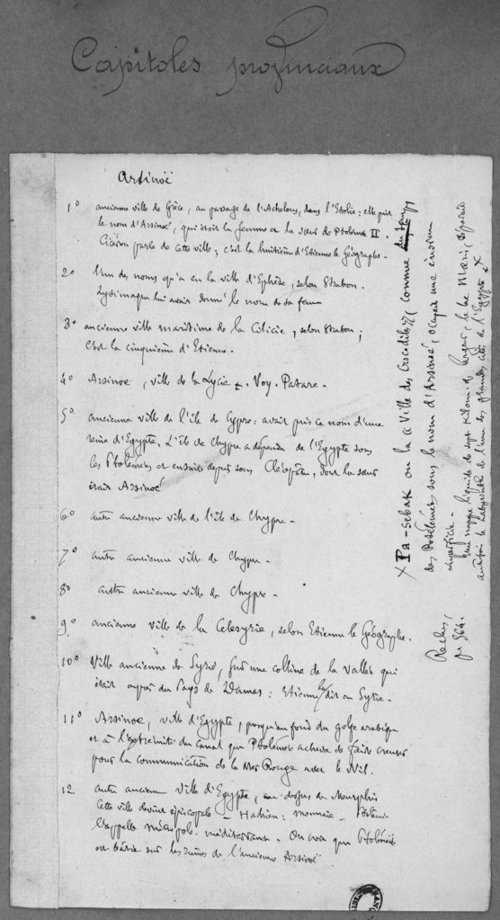 Capitoles provinciaux
Arsinoë
1° ancienne ville de Grèce, au passage de l'Achelous, dans l'Etolie: elle prit
le nom d'Arsinoé, qui était la femme et la sœur de Ptolémée II.
Cicéron parle de cette ville; c'est la huitième d'Etienne le Géographe.
2° l'un des noms qu'a eu la ville d'Ephèse, selon Strabon.
Lysimaque lui avait donné le nom de sa femme
3° ancienne ville maritime de la Cilicie, selon Strabon;
C'est la cinquième d'Etienne.
4° Arsinoe, ville de la Lycie. Voy. Patare.
5° ancienne ville de l'île de Cypre: avait pris ce nom d'une
reine d'Egypte. L'île de Chypre a dépendu de l'Egypte sous
les Ptolémées et ensuite depuis sous Cléopâtre, dont la sœur
était Arsinoé
6° autre ancienne ville de l'île de Chypre.
7° autre ancienne ville de Chypre.
8° autre ancienne ville de Chypre.
9° ancienne ville de la Celesyrie, selon Etienne le Géographe.
10° Ville ancienne de Syrie, sur une colline de la vallée qui
était auprès du Pays de Damas: Etienne dit en Syrie.
11° Arsinoe, ville d'Egypte, presqu'au fond du golfe arabique
et à l'extrémité du Canal que Ptolémée acheva de faire creuser
pour la communication de la Mer Rouge avec le Nil.
12 autre ancienne ville d'Egypte, au-dessus de Memphis
Cette ville devint épiscopale - Hadrien: monnaie - Ptolémée
l'appelle métropole méditerranée. On croit que Ptolémaïs
est bâtie sur les ruines de l'ancienne Arsinoé
x Pa-sebak ou la Ville des Crocodiles, connue du temps
des Ptolémées sous le nom d'Arsinoé, occupait une énorme
superficie.
Une nappe liquide de sept kilom. de largeur, le lac Mœris, séparait
autrefois le Labyrinthe de l'une des grandes cités de l'Egypte x
Reclus,
p. 564.